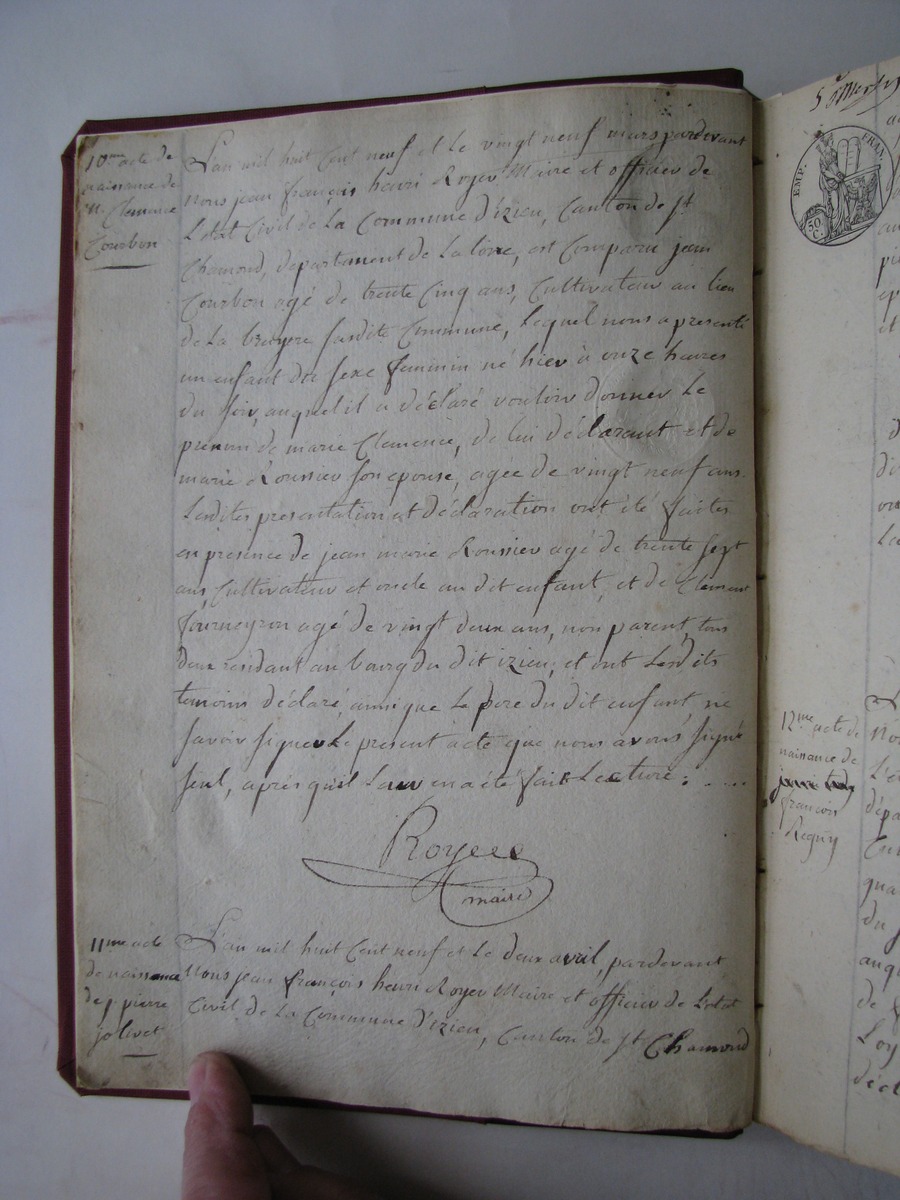 10me acte de
naissance de
M. Clemence
Courbon
L'an mil huit Cent neuf et le vingt neuf mars pardevant
nous jean françois henri Royer Maire et officier de
L'etat Civil de La Commune d'izieu, Canton de St
Chamond, departement de La Loire, est Comparu jean
Courbon agé de trente Cinq ans, Cultivateur au lieu
de La bruyere susdite Commune, Lequel nous a presenté
un enfant du sexe feminin né hier à onze heures
du soir, auquel il a déclaré vouloir donner Le
prenom de marie Clemence, de lui déclarant et de
marie Roussier son epouse, agée de vingt neuf ans.
Lesdites presentation et déclaration ont été faites
en presence de jean marie Roussier agé de trente sept
ans Cultivateur et oncle au dit enfant, et de Clement
fourneyron agé de vingt deux ans, non parent, tous
deux residant au bourg du dit izieu, et ont Lesdits
temoins déclaré, ainsi que Le pere du dit enfant, ne
savoir signer Le present acte que nous avons signé
seul, après qu'il Leur en a été fait Lecture :
Royer
maire
11me acte
de naissance
de j. pierre
jolivet
L'an mil huit Cent neuf et Le deux avril, pardevant
Nous jean françois henri Royer Maire et officier de L'etat
Civil de La Commune d'izieu, Canton de St Chamond
EMP. FRAN.
50
C.
12me acte de
naissance de
françois
Reguy